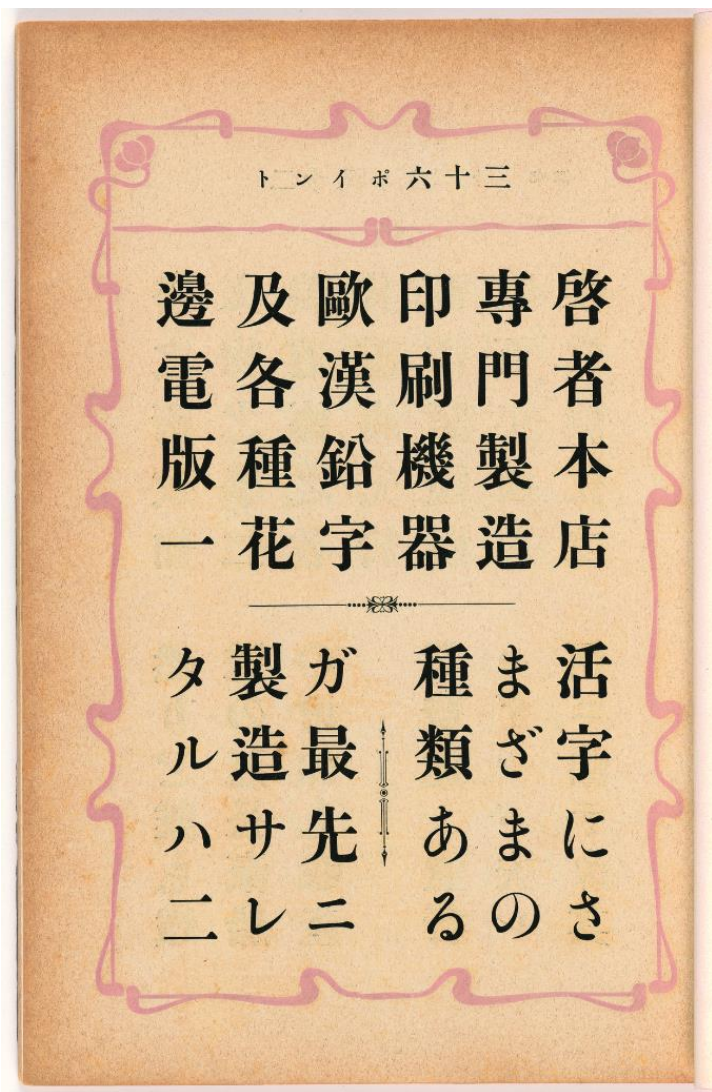 三十六ポイント
啓者本店
專門製造
印刷機器
歐漢鉛字
及各種花
邊電版一
活字にさ
まざまの
種類ある
ガ最先ニ
製造サレ
タルハ二